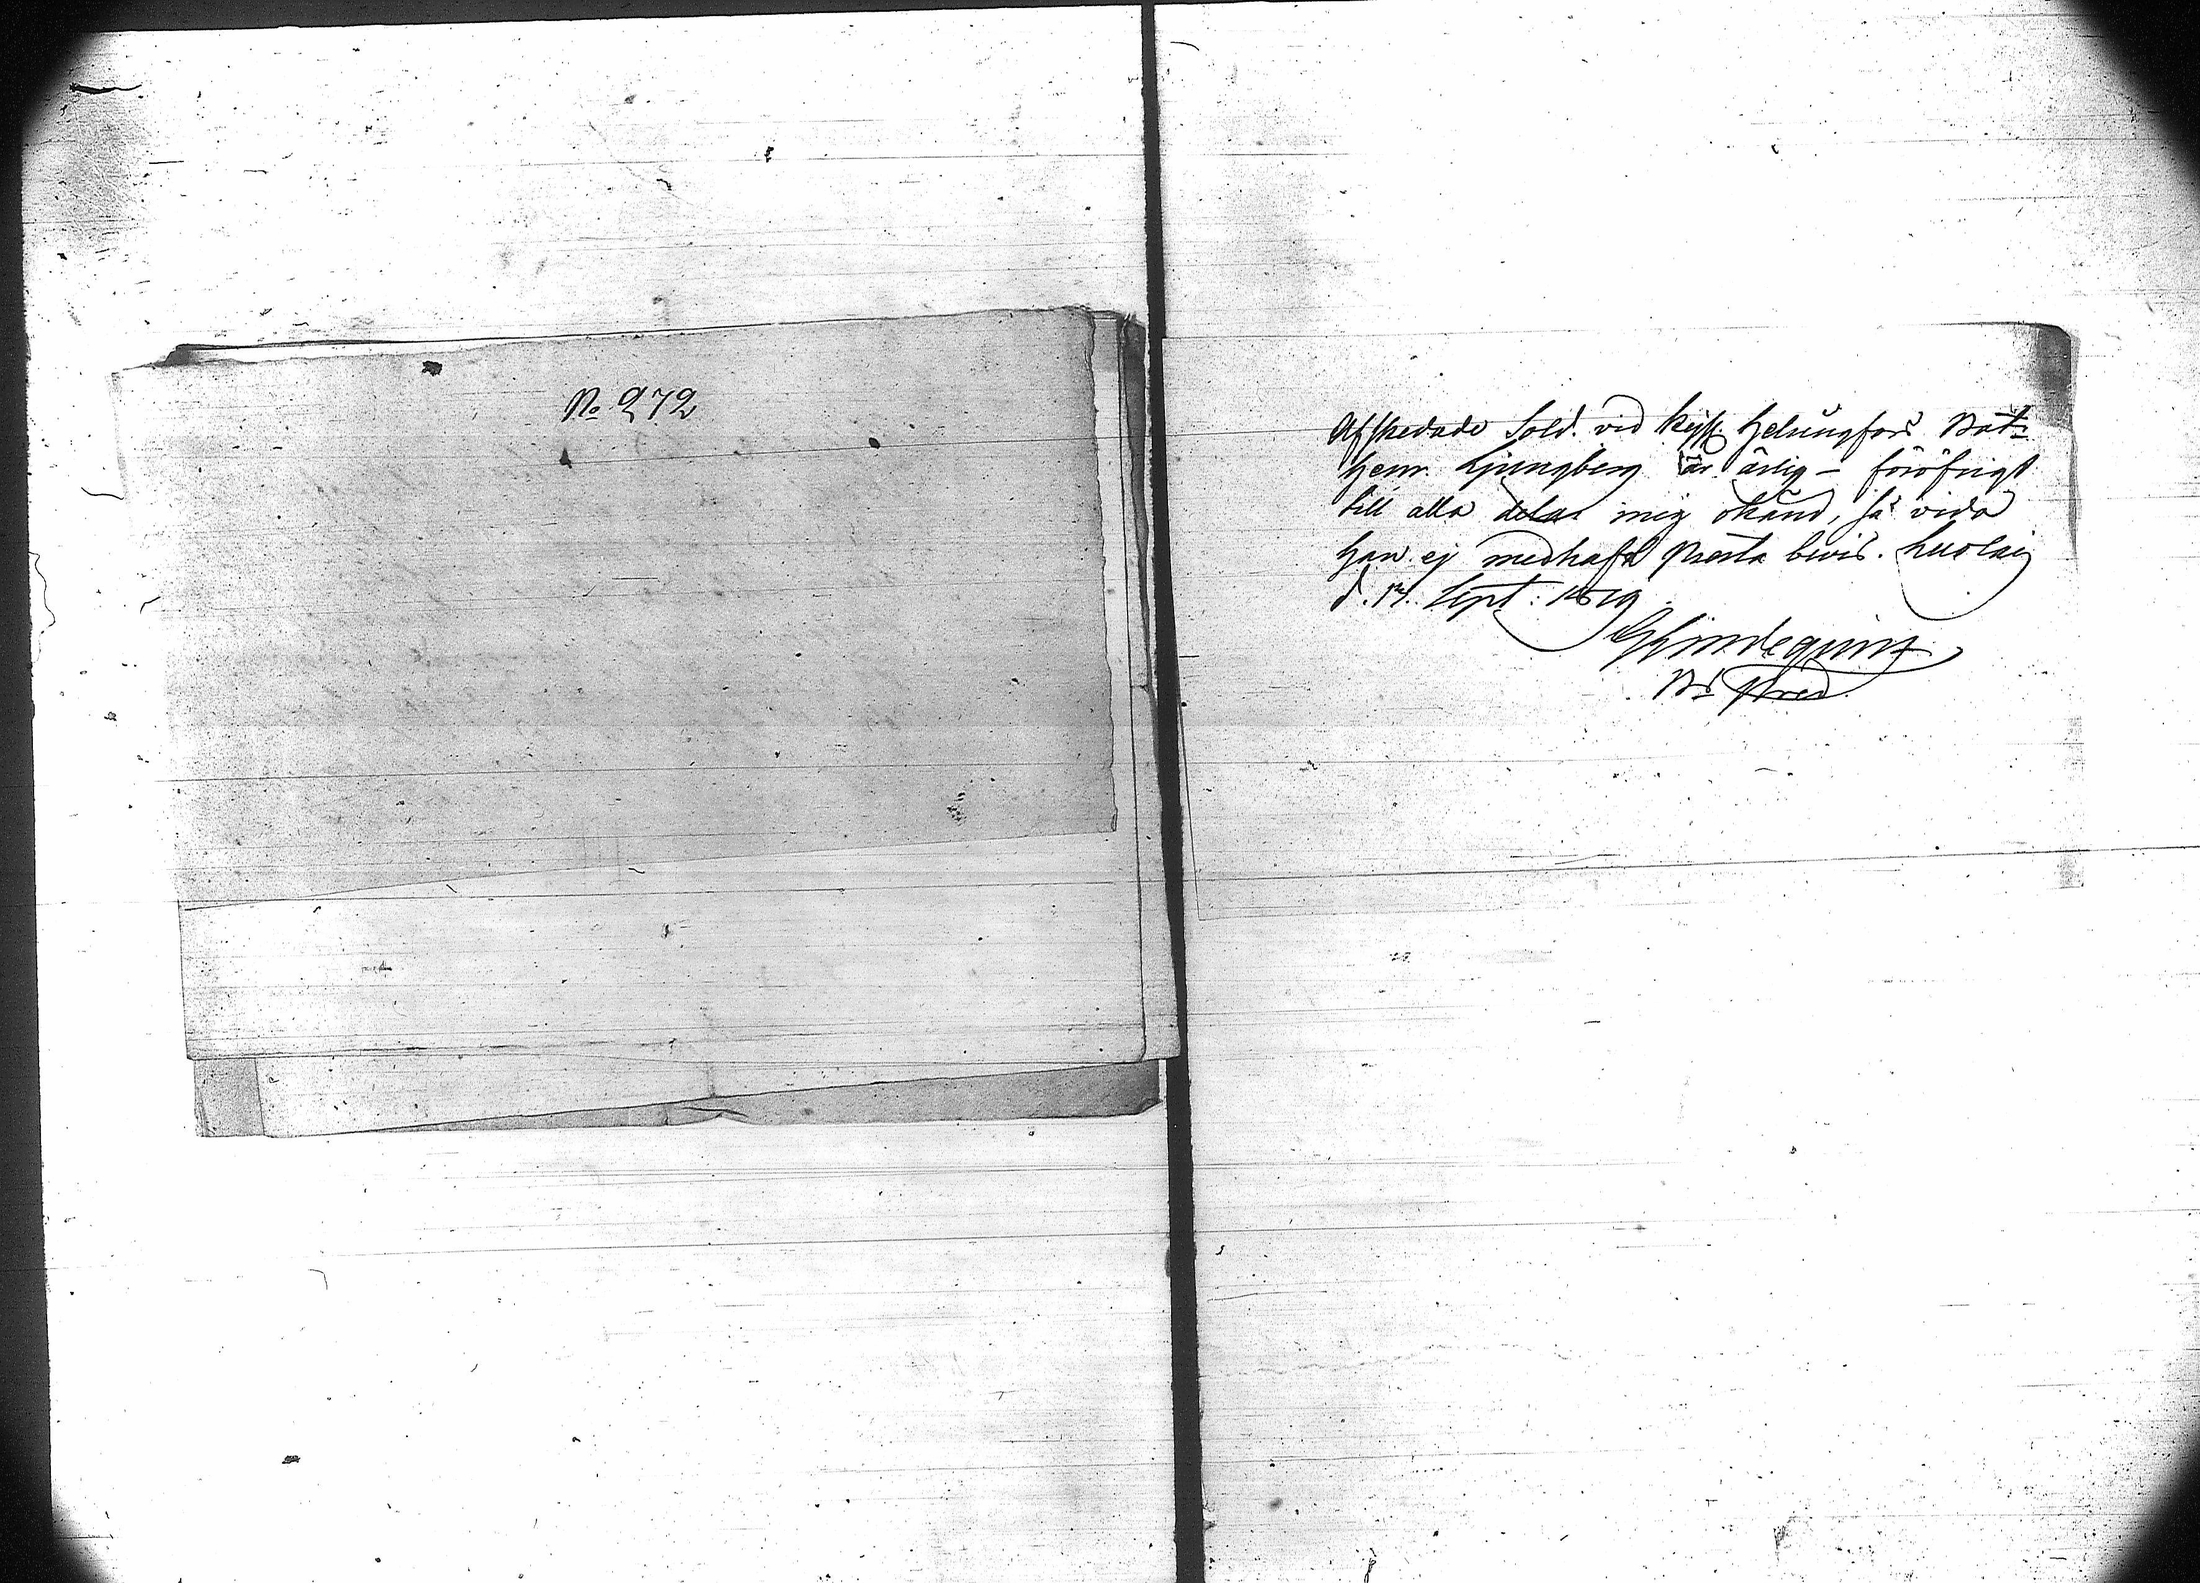 No 272
Afskedade Sold. vid Kejs. Helsingfors Bat:
Henr. Ljungberg är ärlig -föröfrigt
till alla delar mig okänd, så vida
han ej medhaft Presta bevis. Kuolaj
d. 17. Sept: 1819
Pred